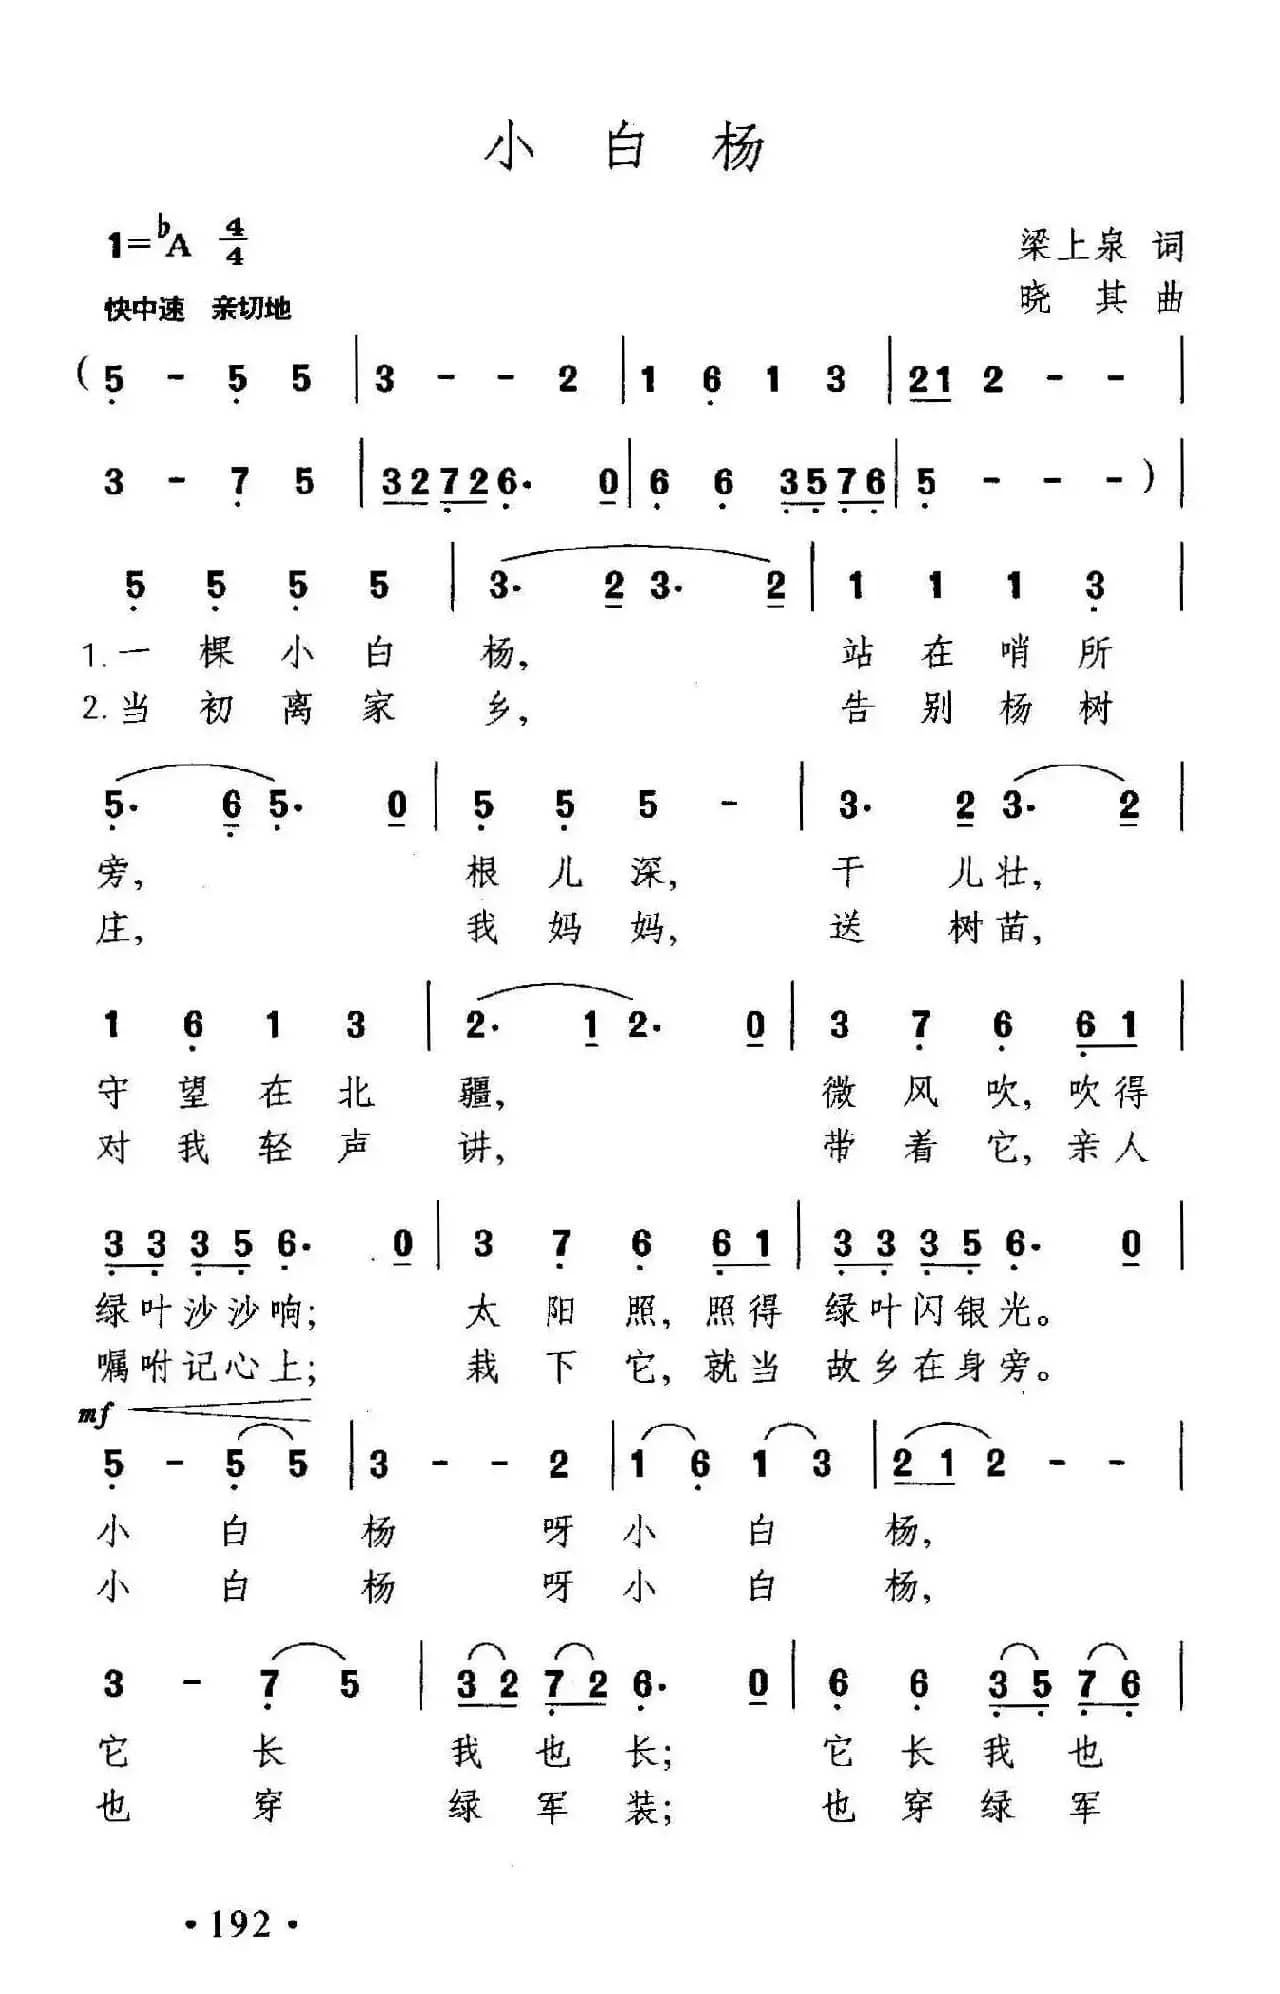 小白杨
1=♭A 4/4
梁上泉 词
快中速 亲切地
晓其曲
(5 - 5 5 | 3 - - 2 | 1 6 1 3 | 21 2 - - |
3 - 7 5 | 32726· 0 | 6 6 3576 | 5 - - - ) |
5 5 5 5 | 3· 2 3· 2 | 1 1 1 3 |
1.一棵小白杨, 站在哨所
2.当初离家乡, 告别杨树
5· 6 5· 0 | 5 5 5 - | 3· 2 3· 2 |
旁, 根儿深, 干儿壮,
庄, 我妈妈, 送树苗,
1 6 1 3 | 2· 1 2· 0 | 3 7 6 6 1 |
守望在北疆, 微风吹, 吹得
对我轻声讲, 带着它, 亲人
3 3 3 5 6· 0 | 3 7 6 6 1 | 3 3 3 5 6· 0 |
绿叶沙沙响; 太阳照, 照得绿叶闪银光。
嘱咐记心上; 栽下它, 就当故乡在身旁。
mf
5 - 5 5 | 3 - - 2 | 1 6 1 3 | 2 1 2 - - |
小白杨呀小白杨,
小白杨呀小白杨,
3 - 7 5 | 3 2 7 2 6· 0 | 6 6 3 5 7 6 |
它长我也长; 它长我也
也穿绿军装; 也穿绿军
·192·